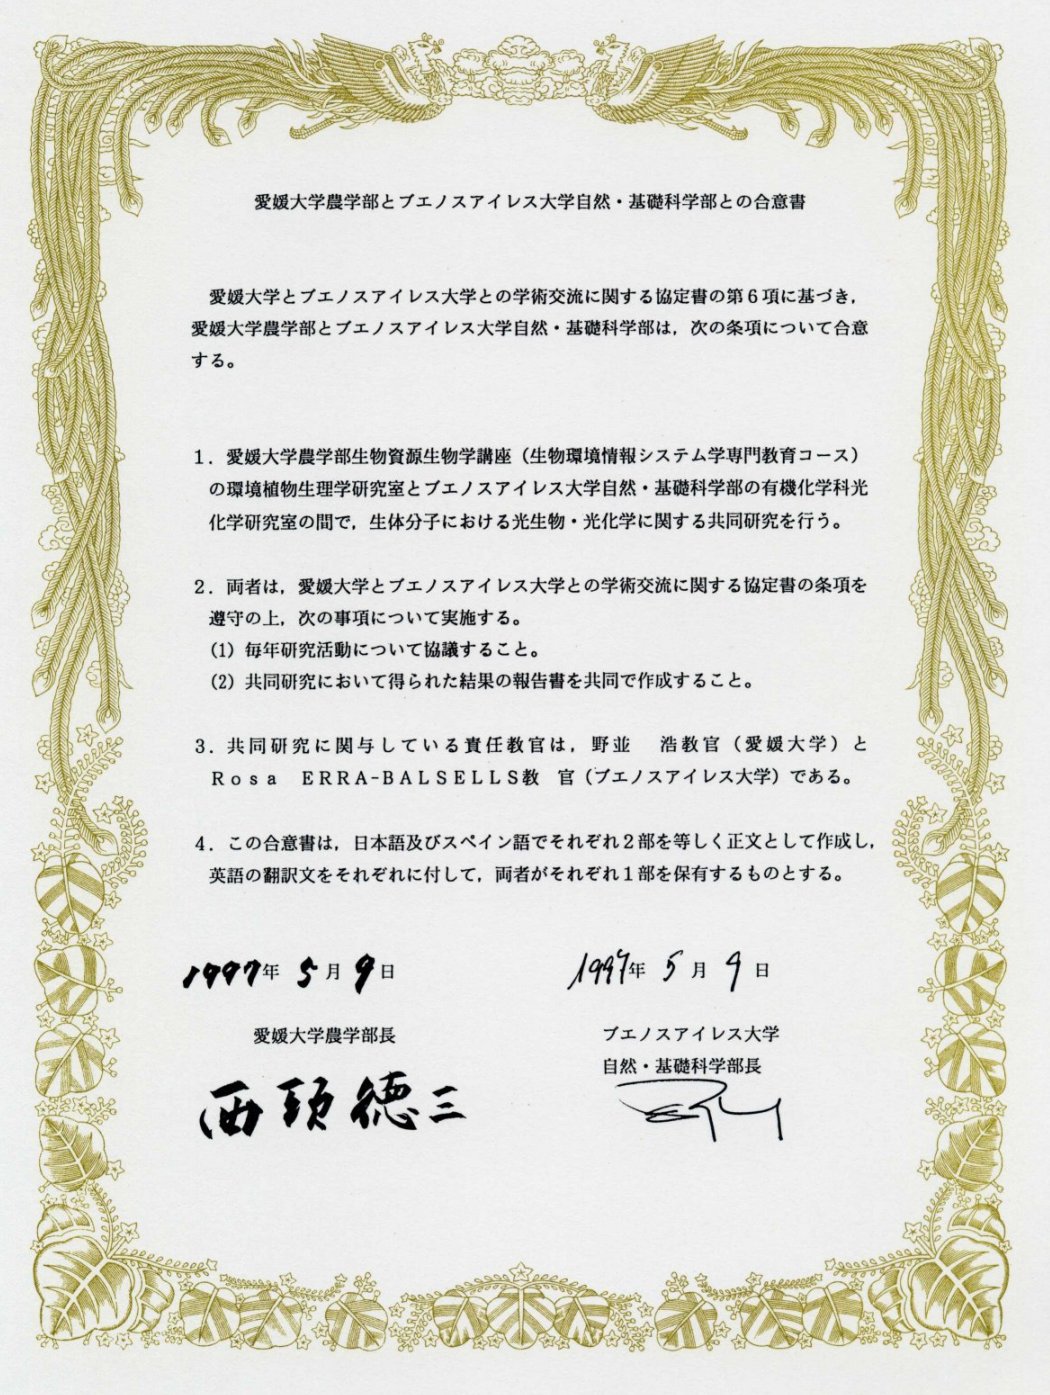 愛媛大学農学部とブエノスアイレス大学自然・基礎科学部との合意書
愛媛大学とブエノスアイレス大学との学術交流に関する協定書の第６項に基づき，
愛媛大学農学部とブエノスアイレス大学自然・基礎科学部は，次の条項について合意
する。
１．愛媛大学農学部生物資源生物学講座（生物環境情報システム学専門教育コース）
の環境植物生理学研究室とブエノスアイレス大学自然・基礎科学部の有機化学科光
化学研究室の間で，生体分子における光生物・光化学に関する共同研究を行う。
２．両者は，愛媛大学とブエノスアイレス大学との学術交流に関する協定書の条項を
遵守の上，次の事項について実施する。
(1) 毎年研究活動について協議すること。
(2) 共同研究において得られた結果の報告書を共同で作成すること。
３．共同研究に関与している責任教官は，野並　浩教官（愛媛大学）と
Ｒｏｓａ　ＥＲＲＡ-ＢＡＬＳＥＬＬＳ教　官（ブエノスアイレス大学）である。
４．この合意書は，日本語及びスペイン語でそれぞれ２部を等しく正文として作成し，
英語の翻訳文をそれぞれに付して，両者がそれぞれ１部を保有するものとする。
1997年 5月 9日
1997年 5月 9日
愛媛大学農学部長
ブエノスアイレス大学
自然・基礎科学部長
西頭徳三